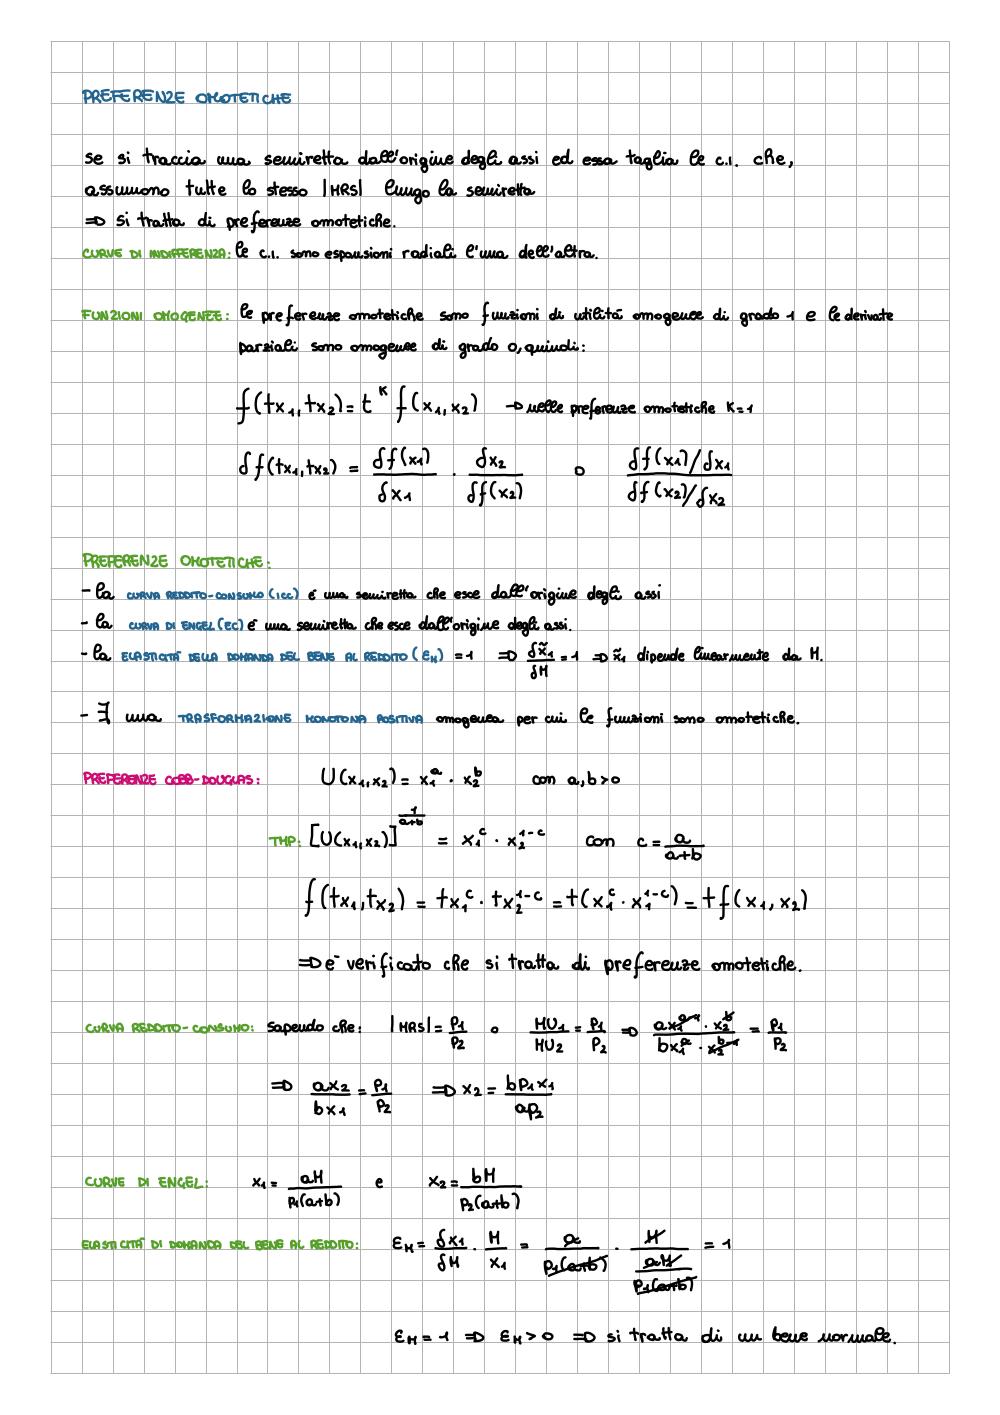 PREFERENZE OMOTETICHE
se si traccia una semiretta dall'origine degli assi ed essa taglia le c.i. che,
assumono tutte lo stesso |MRS| lungo la semiretta
⇒ si tratta di preferenze omotetiche.
CURVE DI INDIFFERENZA: le c.i. sono espansioni radiali l'una dell'altra.
FUNZIONI OMOGENEE: le preferenze omotetiche sono funzioni di utilitá omogenee di grado 1 e le derivate
parziali sono omogenee di grado 0, quindi:
f(tx₁,tx₂) = t^K f(x₁,x₂) → nelle preferenze omotetiche K=1
δf(tx₁,tx₂) = δf(x₁)/δx₁ · δx₂/δf(x₂) o (δf(x₁)/δx₁)/(δf(x₂)/δx₂)
PREFERENZE OMOTETICHE:
- la CURVA REDDITO-CONSUMO (ICC) é una semiretta che esce dall'origine degli assi
- la CURVA DI ENGEL (EC) é una semiretta che esce dall'origine degli assi.
- la ELASTICITÁ DELLA DOMANDA DEL BENE AL REDDITO (ε_M) = 1 ⇒ δx̃₁/δM = 1 ⇒ x̃₁ dipende linearmente da M.
- ∃ una TRASFORMAZIONE MONOTONA POSITIVA omogenea per cui le funzioni sono omotetiche.
PREFERENZE COBB-DOUGLAS: U(x₁,x₂) = x₁^a · x₂^b con a,b>0
TMP: [U(x₁,x₂)]^(1/(a+b)) = x₁^c · x₂^(1-c) con c = a/(a+b)
f(tx₁,tx₂) = tx₁^c · tx₂^(1-c) = t(x₁^c · x₁^(1-c)) = tf(x₁,x₂)
⇒ é verificato che si tratta di preferenze omotetiche.
CURVA REDDITO-CONSUMO: sapendo che: |MRS| = p₁/p₂ o MU₁/MU₂ = p₁/p₂ ⇒ (ax₁^(a-1) · x₂^b)/(bx₁^a · x₂^(b-1)) = p₁/p₂
⇒ ax₂/bx₁ = p₁/p₂ ⇒ x₂ = bp₁x₁/ap₂
CURVE DI ENGEL: x₁ = aM/(p₁(a+b)) e x₂ = bM/(p₂(a+b))
ELASTICITÁ DI DOMANDA DEL BENE AL REDDITO: ε_M = δx₁/δM · M/x₁ = a/(p₁(a+b)) · M/(aM/(p₁(a+b))) = 1
ε_M = 1 ⇒ ε_M > 0 ⇒ si tratta di un bene normale.